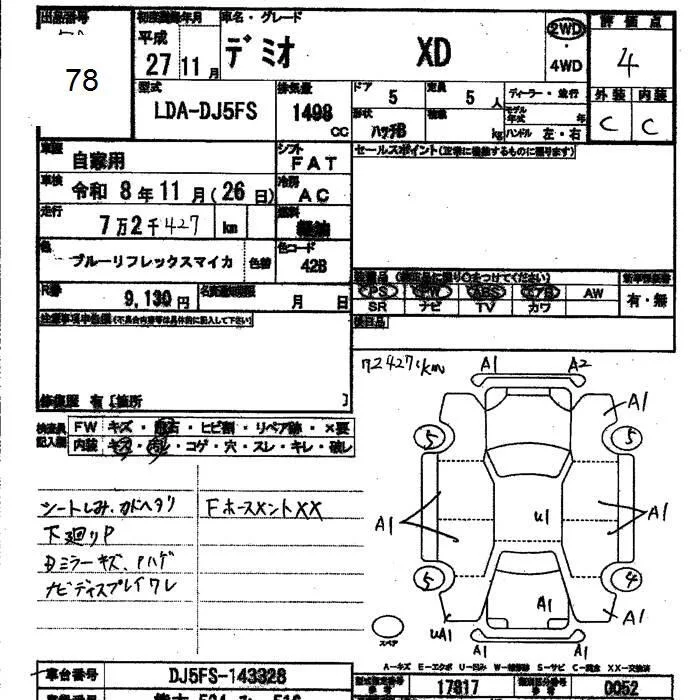 出品番号
78
初度登録年月
平成
27 11 月
車名・グレード
デミオ XD
2WD
・
4WD
評価点
4
外装 内装
C C
型式
LDA-DJ5FS
排気量
1498 CC
ドア
5
定員
5 人
形状
ハッチB
積載
kg
ディーラー・並行
モデル年式 年
ハンドル 左・右
車歴
自家用
シフト
FAT
セールスポイント(正常に機能するものに限ります)
車検
令和 8 年 11 月 (26 日)
冷房
AC
走行
7万2千427 km
燃料
軽油
色
ブルーリフレックスマイカ
色替
色コード
42B
R券
9,130 円
名義変更期限
月 日
PS PW ABS エアB AW
SR ナビ TV カワ
有・無
後日品
注意事項申告欄(不具合内容等は具体的に記入して下さい)
修復歴 有 [箇所 ]
検査員記入欄
FW キズ・飛石・ヒビ割・リペア跡・×要
内装 キズ・汚レ・コゲ・穴・スレ・キレ・破レ
シートしみ、カドヘタリ
下廻りP
Dミラーキズ、Pハゲ
ナビディスプレイワレ
FホースメントXX
72427km
A1 A2
A1
5 5
A1 A1
U1
5 4
A1
UA1 A1
A1 A1
スペア
A-キズ E-エクボ U-凹み W-補修跡 S-サビ C-腐食 XX-交換済
車台番号
DJ5FS-143328
型式指定番号
17817
類別区分番号
0052